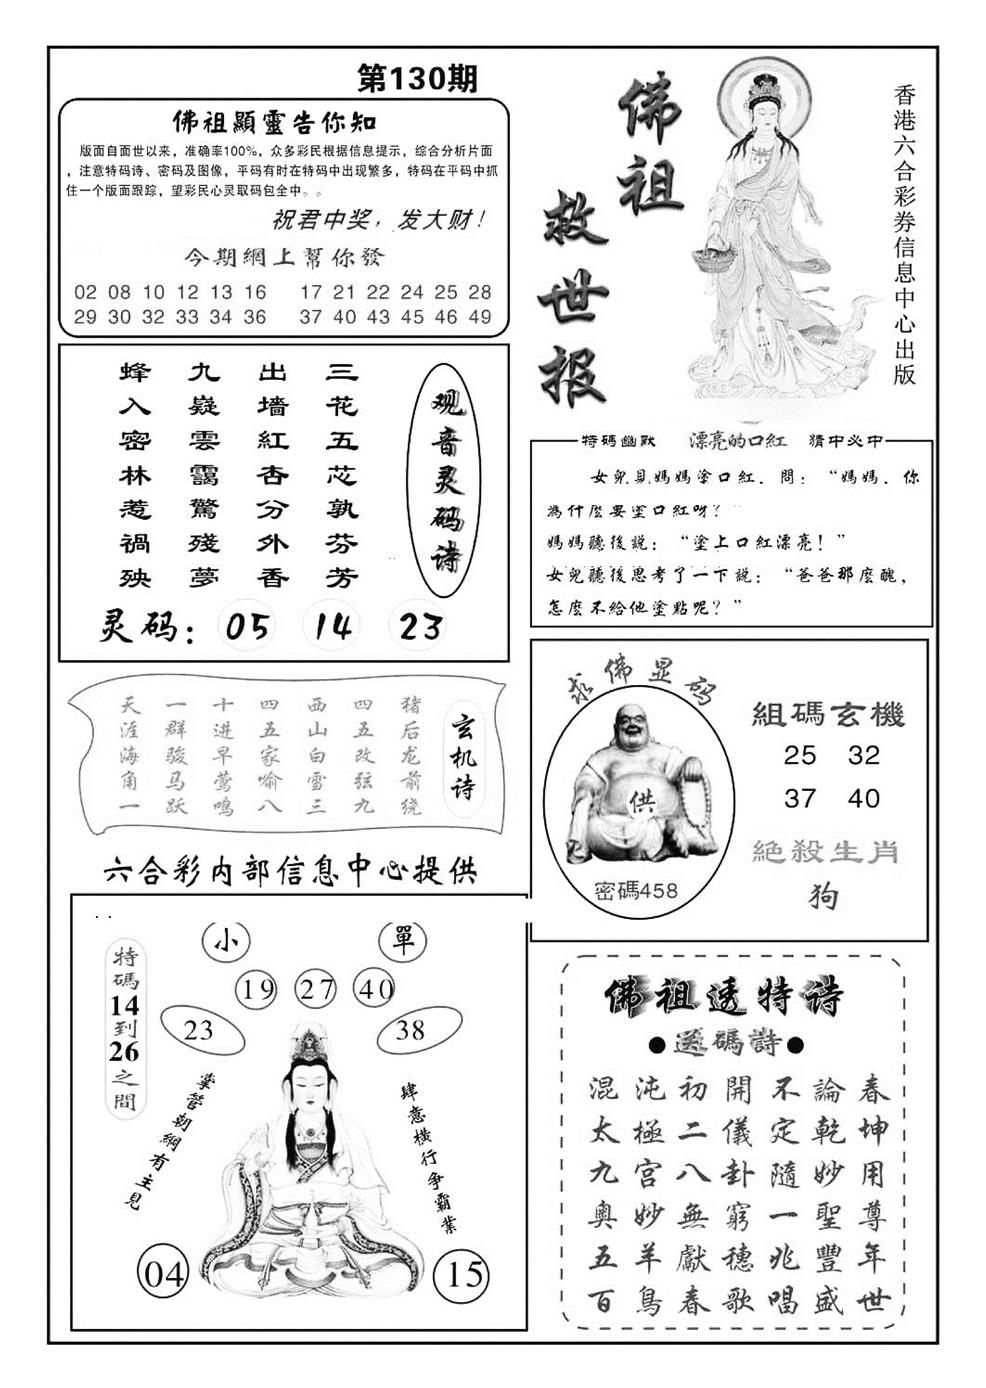 第130期
佛祖顯靈告你知
版面自面世以来，准确率100%，众多彩民根据信息提示，综合分析片面
，注意特码诗、密码及图像，平码有时在特码中出现繁多，特码在平码中抓
住一个版面跟踪，望彩民心灵取码包全中。。
祝君中奖，发大财！
今期網上幫你發
02 08 10 12 13 16 17 21 22 24 25 28
29 30 32 33 34 36 37 40 43 45 46 49
佛祖
救世报
香港六合彩券信息中心出版
观音灵码诗
三花五芯孰芬芳
出墙紅杏分外香
九嶷雲靄驚殘夢
蜂入密林惹禍殃
灵码：05 14 23
特碼幽默 漂亮的口紅 猜中必中
女兒見媽媽塗口紅．問：“媽媽．你
為什麼要塗口紅呀？”
媽媽聽後説：“塗上口紅漂亮！”
女兒聽後思考了一下説：“爸爸那麼醜，
怎麼不給他塗點呢？”
玄机诗
猪后龙前绕
四五改弦九
西山白雪三
四五家喻八
十进早莺鸣
一群骏马跃
天涯海角一
求佛显码
供
密碼458
組碼玄機
25 32
37 40
絕殺生肖
狗
六合彩内部信息中心提供
小 單
19 27 40
23 38
特碼14到26之間
掌管朝綱有主見
肆意橫行争霸業
04 15
佛祖透特诗
●送碼詩●
混沌初開不論春
太極二儀定乾坤
九宮八卦隨妙用
奥妙無窮一聖尊
五羊獻穗兆豐年
百鳥春歌唱盛世